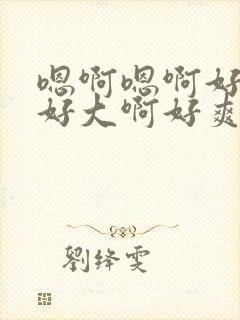 嗯啊嗯啊好
好大啊好爽
劉绛雯